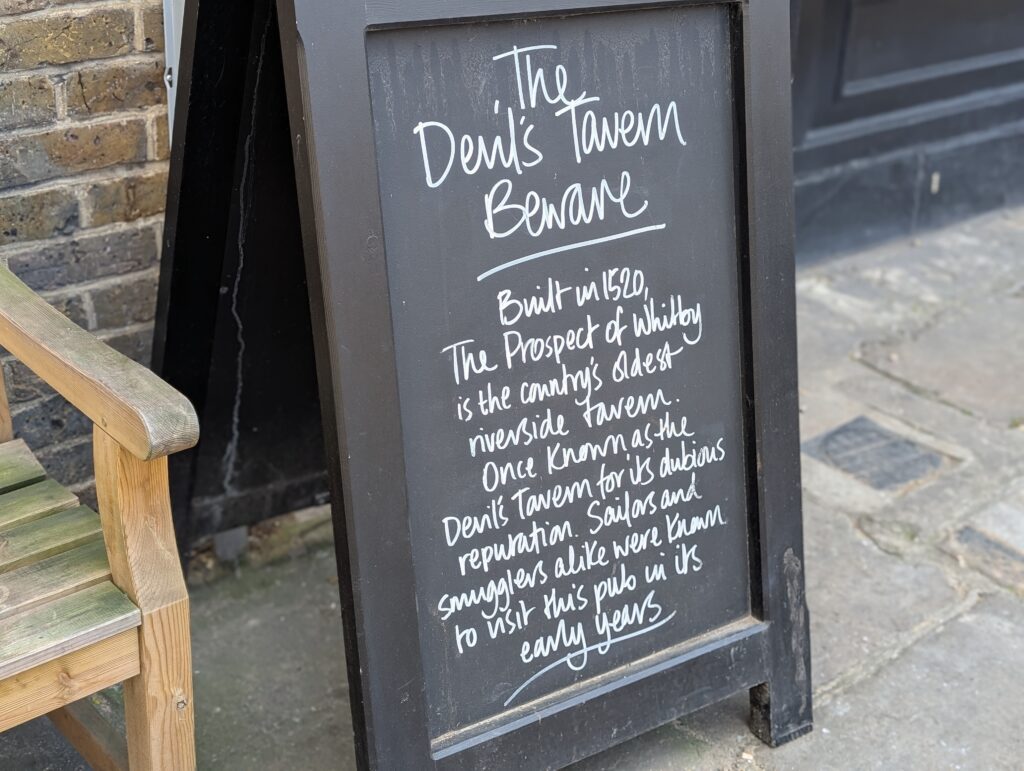 The
Devil's Tavern
Beware
Built in 1520,
The Prospect of Whitby
is the country's oldest
riverside tavern.
Once Known as the
Devil's Tavern for its dubious
reputation. Sailors and
smugglers alike were Known
to visit this pub in its
early years